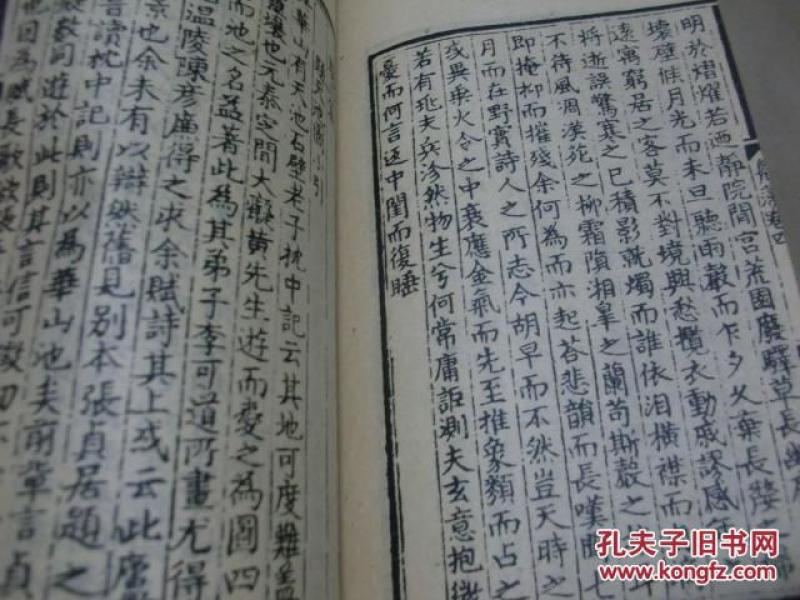 明於熠燿若迺靜院閒宮荒園廢驛草長
壞壁候月光而未旦聽雨聲而下夕
遠寓窮居之客莫不對境興愁攬衣動感
將逝誤驚寒之已積影就燭而誰依淚橫襟而
不待風凋漢苑之柳霜隕湘皋之蘭苟斯聲之
即掩抑而摧殘余何為而亦起荅悲韻而長嘆
月而在野實詩人之所志今胡早而不然豈天時之
或異乘火令之中衰應金氣而先至推象類而占之
若有兆夫兵沴然物生兮何常庸詎測夫玄意抱
憂而何言還中閨而復睡
華山有天池石壁老子枕中記云其地可度難
也元泰定間大癡黃先生遊而愛之為圖四
而地之名益著此為其弟子李可道所畫尤得
溫陵陳彥廉得之求余賦詩其上或云此
景也余未有以辯然舊見別本張貞居題之
讀枕中記則亦以為華山池矣前輩言貞
遊於此則其言信可
也因為賦長歌
孔夫子旧书网
www.kongfz.com